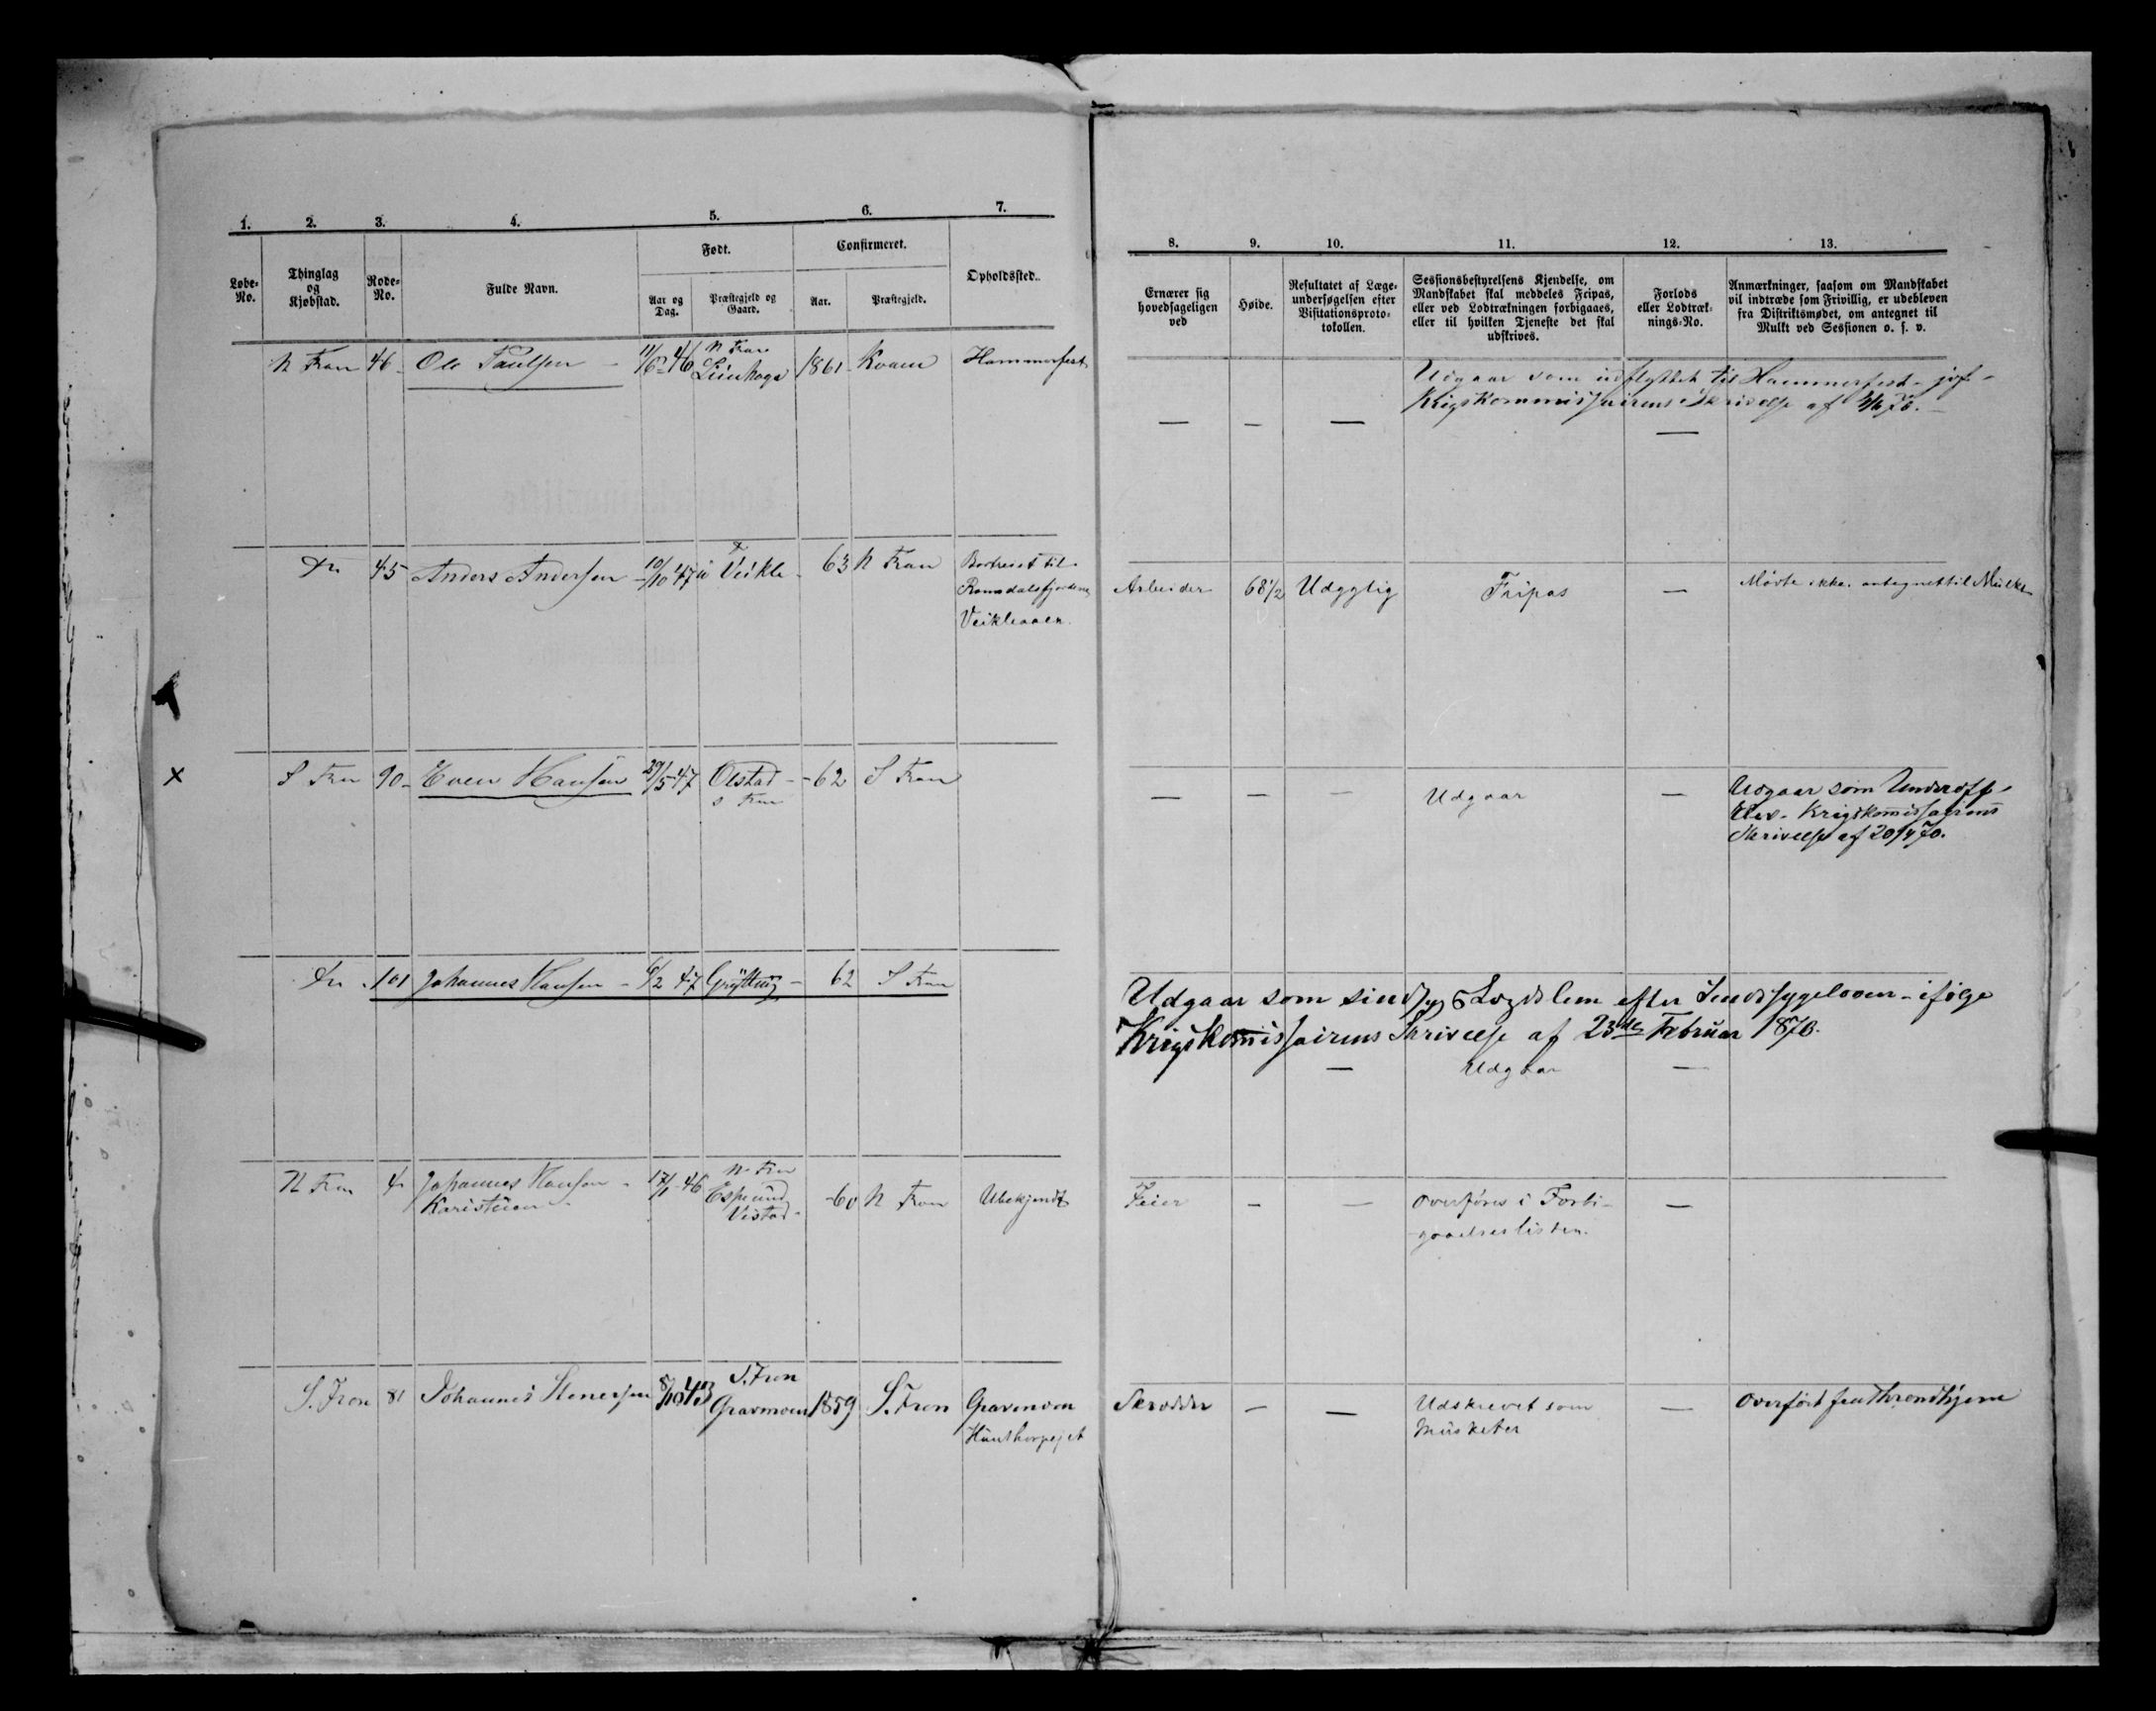 1. 2. 3. 4. 5. 6. 7.
Løbe-No.
Thinglag og Kjøbstad.
Rode-No.
Fulde Navn.
Født.
Aar og Dag.
Præstegjeld og Gaard.
Confirmeret.
Aar.
Præstegjeld.
Opholdssted.
8. 9. 10. 11. 12. 13.
Ernærer sig
hovedsageligen
ved
Høide.
Resultatet af Læge-
undersøgelsen efter
Visitationsproto-
tokollen.
Sessionsbestyrelsens Kjendelse, om
Mandskabet skal meddeles Fripas,
eller ved Lodtrækningen forbigaaes,
eller til hvilken Tjeneste det skal
udskrives.
Forlods
eller Lodtræk-
nings-No.
Anmærkninger, saasom om Mandskabet
vil indtræde som Frivillig, er udebleven
fra Distriktsmødet, om antegnet til
Mulkt ved Sessionen o. s. v.
N Fron 46 - Ole Paulsen - 11/6 - 46 N Fron 1861 - Kvam Hammerfest
Udgaar som udflyttet til Hammerfest - jvf -
Krigskommissairens Skrivelse af 70. -
— — — —
Do 45 Anders Andersen - 10/10 47 Veikle - 63 N Fron Bortreist til
Romsdalsfjordene
Veikleaaen.
Arbeider 68 1/2 Udygtig Fripas — Mødte ikke. antegnet til Mulkt
x S Fron 90 - Even Hansen 29/5 47 Olstad - - 62 S Fron
S Fron
— — — Udgaar — Udgaar som Underoff.
Elev. Krigskomissairens
Skrivelse af 20/4 70.
Do 101 Johannes Hansen - 6/2 47 Grytting - 62 S Fron
Udgaar som sindsyg Lægdslem efter Sindssygeloven - ifølge
Krigskomissairens Skrivelse af 23de Februar 1870.
— Udgaar —
N Fron 4 Johannes Hansen - 17/1 - 46 N - Fron
Espeund - 60 N Fron Ubekjendt
Vistad -
Feier — — overføres i Forbi-
gaaelseslisten. —
S. Fron 81 Johannes Stenersen 8/10 43 S. Fron
Gravmoen 1859 S. Fron Gravmoen
Hunthorpejet
Skrædder — — Udskrevet som
Musketer — Overført fra Throndhjem